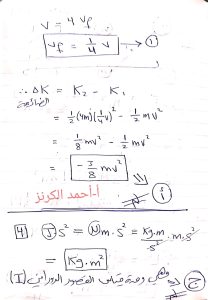 v = 4 vf
vf = 1/4 v → ①
∴ ΔK = K₂ - K₁
الضائعة
= 1/2 (4m)(1/4 v)² - 1/2 mv²
= 1/8 mv² - 1/2 mv²
= -3/8 mv²
أ.أحمد الكرنز
4] J s² = N m · s² = kg.m/s² · m.s²
= kg.m²
وهي وحدة قياس القصور الدوراني (I)